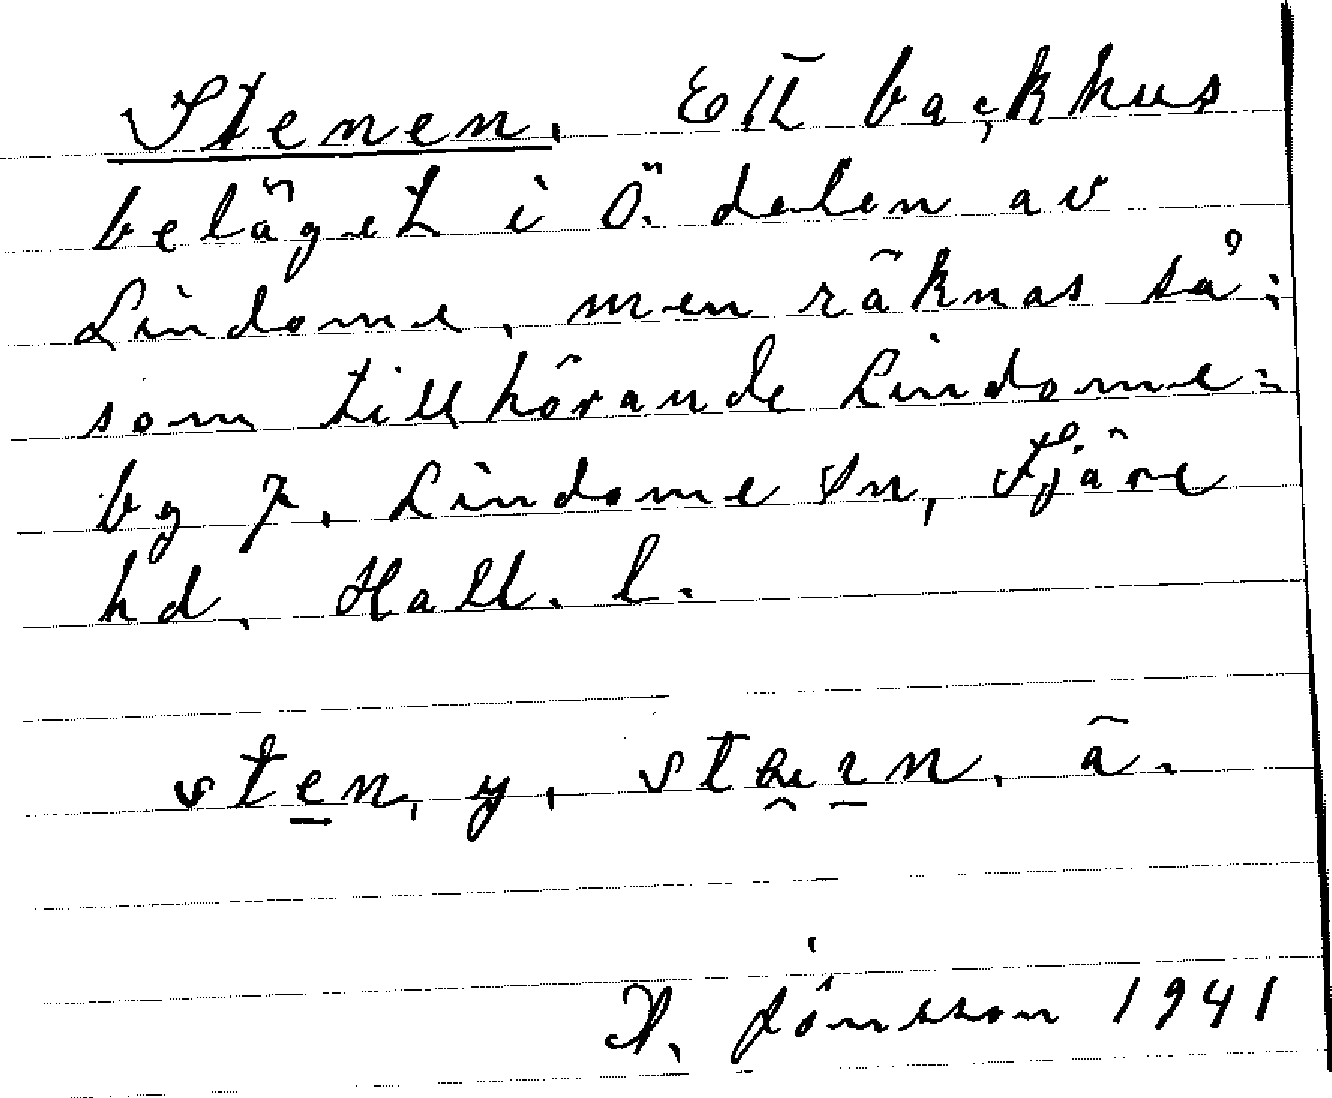 Stenen. Ett backhus
beläget i Ö. delen av
Lindome, men räknas så:
som tillhörande Lindome=
by i. Lindome sn, Fjäre
hd. Hall. l.
sten, y. stæin. ä.
A. Jönsson 1941